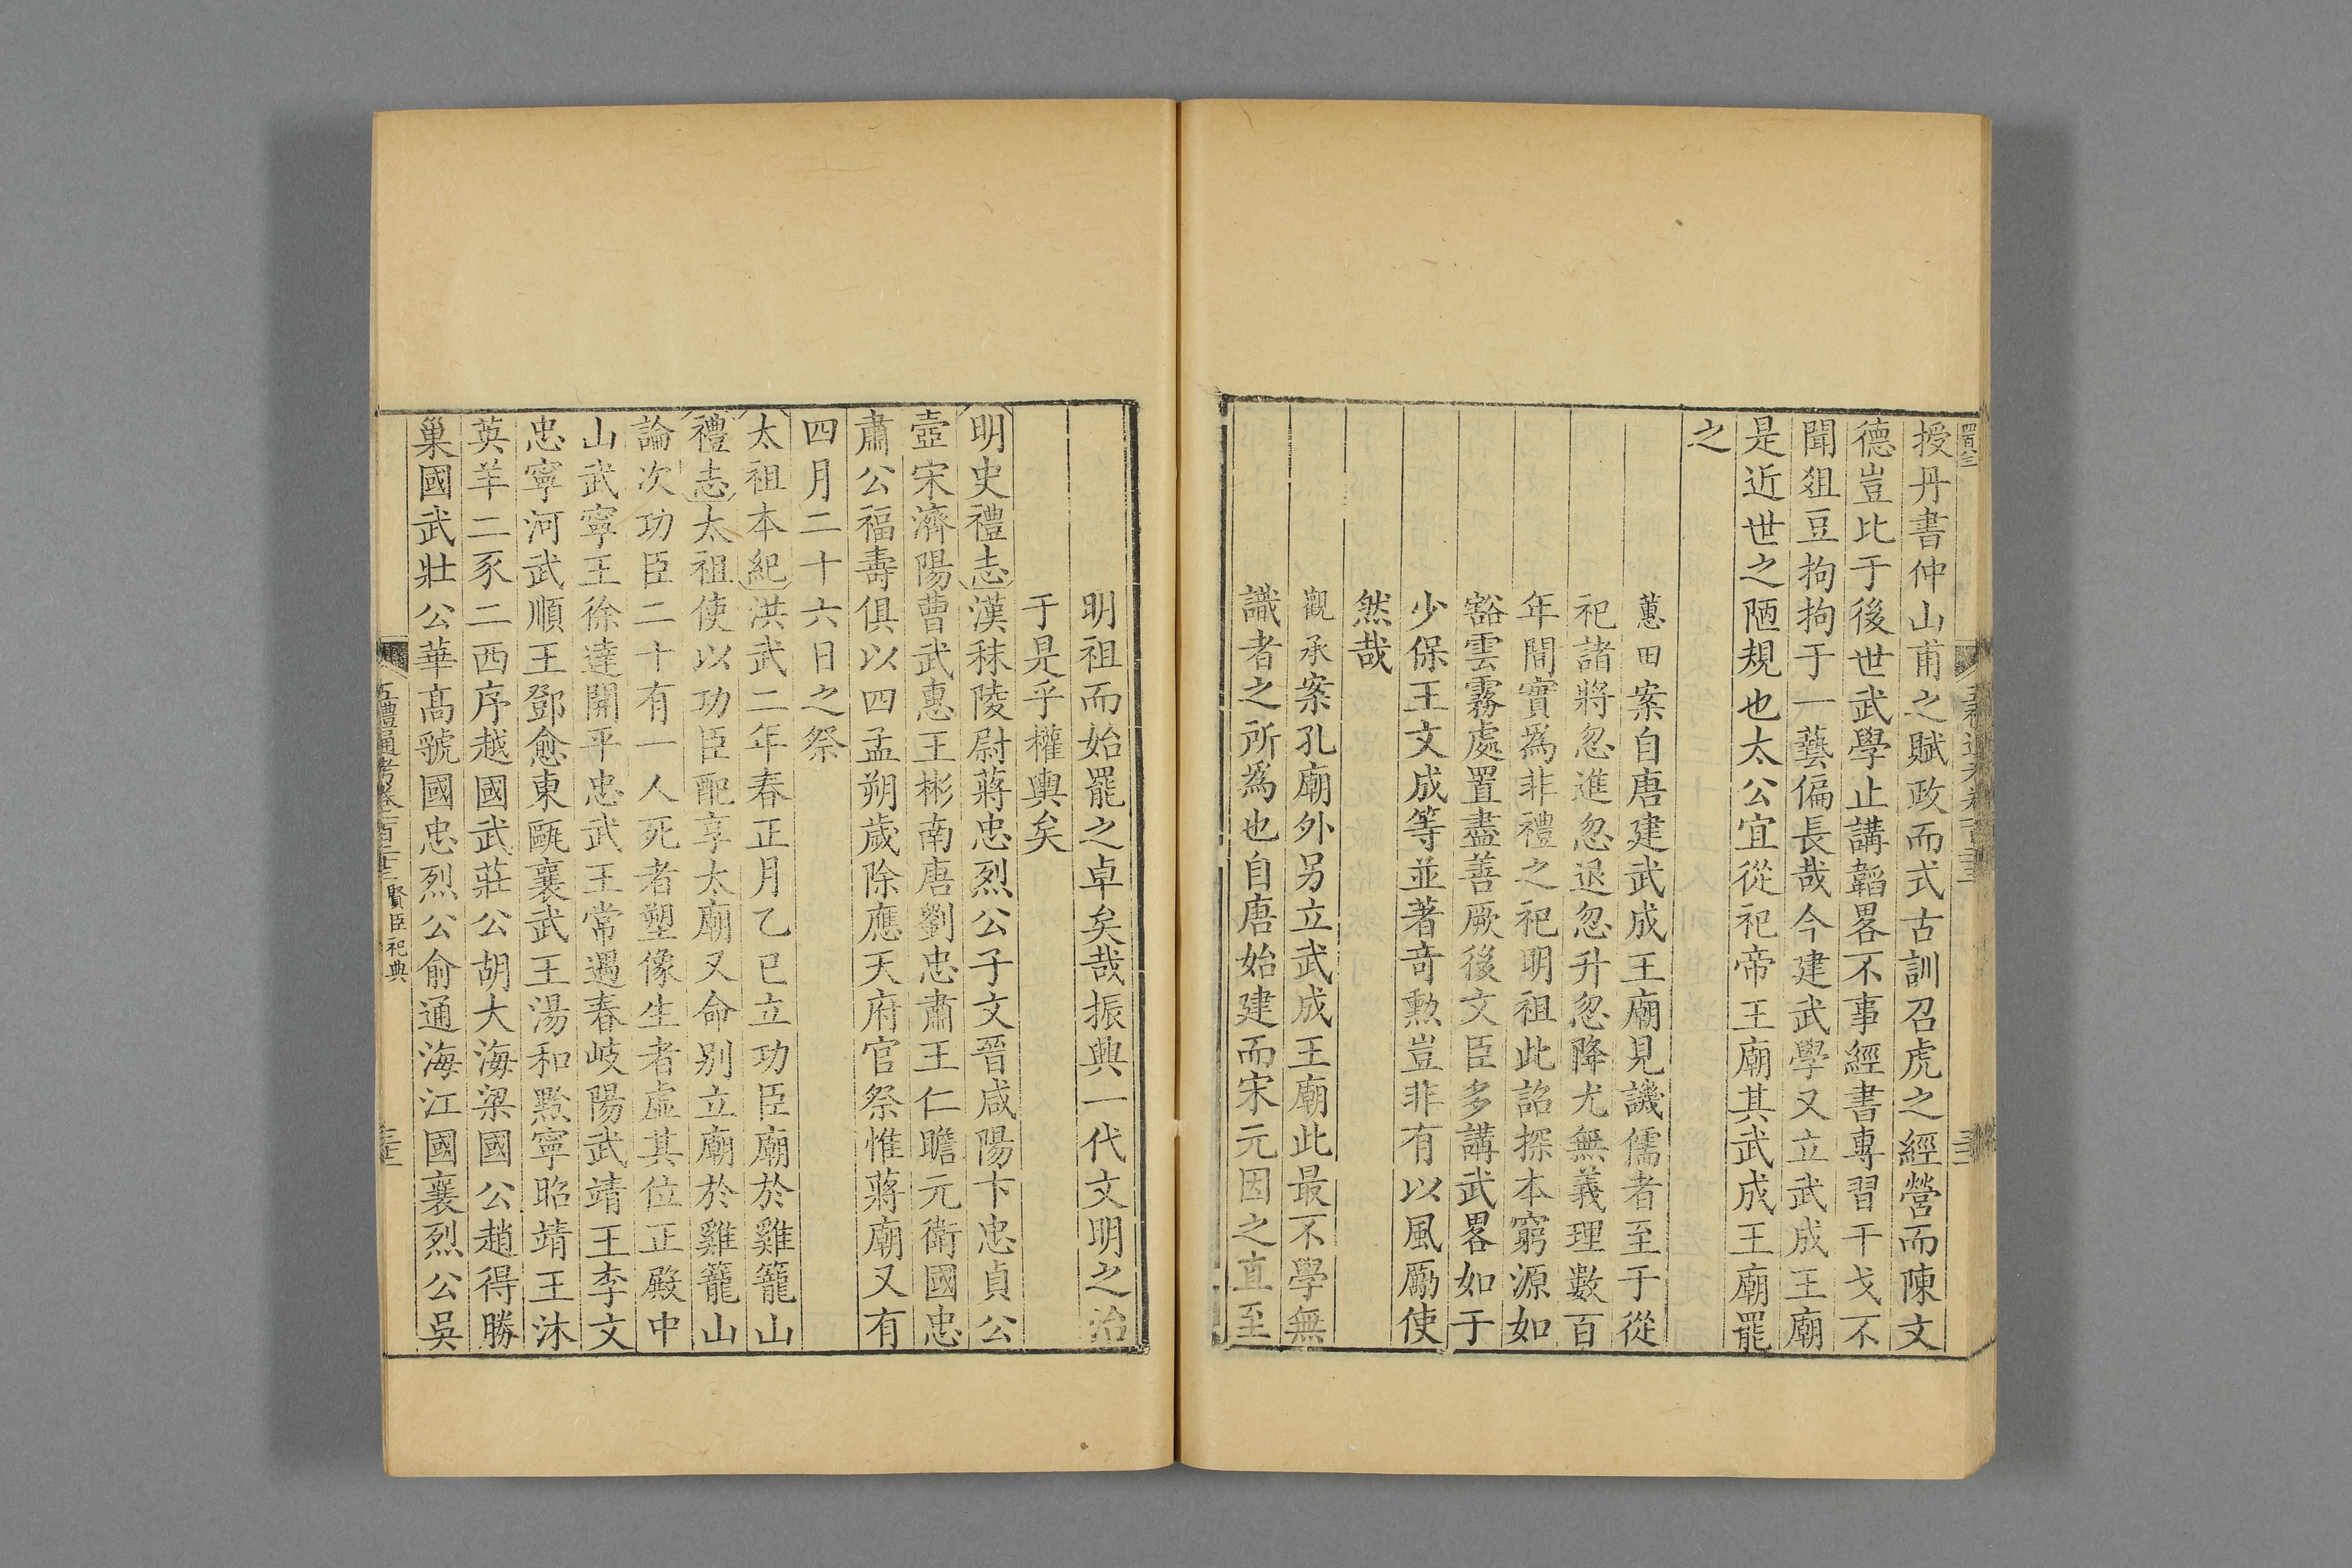 授丹書仲山甫之賦政而式古訓召虎之經營而陳文
德豈比于後世武學止講韜畧不事經書專習干戈不
聞俎豆拘拘于一藝偏長哉今建武學又立武成王廟
是近世之陋規也太公宜從祀帝王廟其武成王廟罷
之
蕙田案自唐建武成王廟見譏儒者至于從
祀諸將忽進忽退忽升忽降尤無義理數百
年間實爲非禮之祀明祖此詔探本窮源如
豁雲霧處置盡善厥後文臣多講武畧如于
少保王文成等並著奇勲豈非有以風勵使
然哉
觀承案孔廟外另立武成王廟此最不學無
識者之所爲也自唐始建而宋元因之直至
明祖而始罷之卓矣哉振興一代文明之治
于是乎權輿矣
明史禮志漢秣陵尉蔣忠烈公子文晉咸陽卞忠貞公
壼宋濟陽曹武惠王彬南唐劉忠肅王仁瞻元衛國忠
肅公福壽俱以四孟朔歲除應天府官祭惟蔣廟又有
四月二十六日之祭
太祖本紀洪武二年春正月乙巳立功臣廟於雞籠山
禮志太祖使以功臣配享太廟又命別立廟於雞籠山
論次功臣二十有一人死者塑像生者虛其位正殿中
山武寧王徐達開平忠武王常遇春岐陽武靖王李文
忠寧河武順王鄧愈東甌襄武王湯和黔寧昭靖王沐
英羊二豕二西序越國武莊公胡大海梁國公趙得勝
巢國武壯公華高虢國忠烈公俞通海江國襄烈公吳
五禮通考卷一百二十三 賢臣祀典